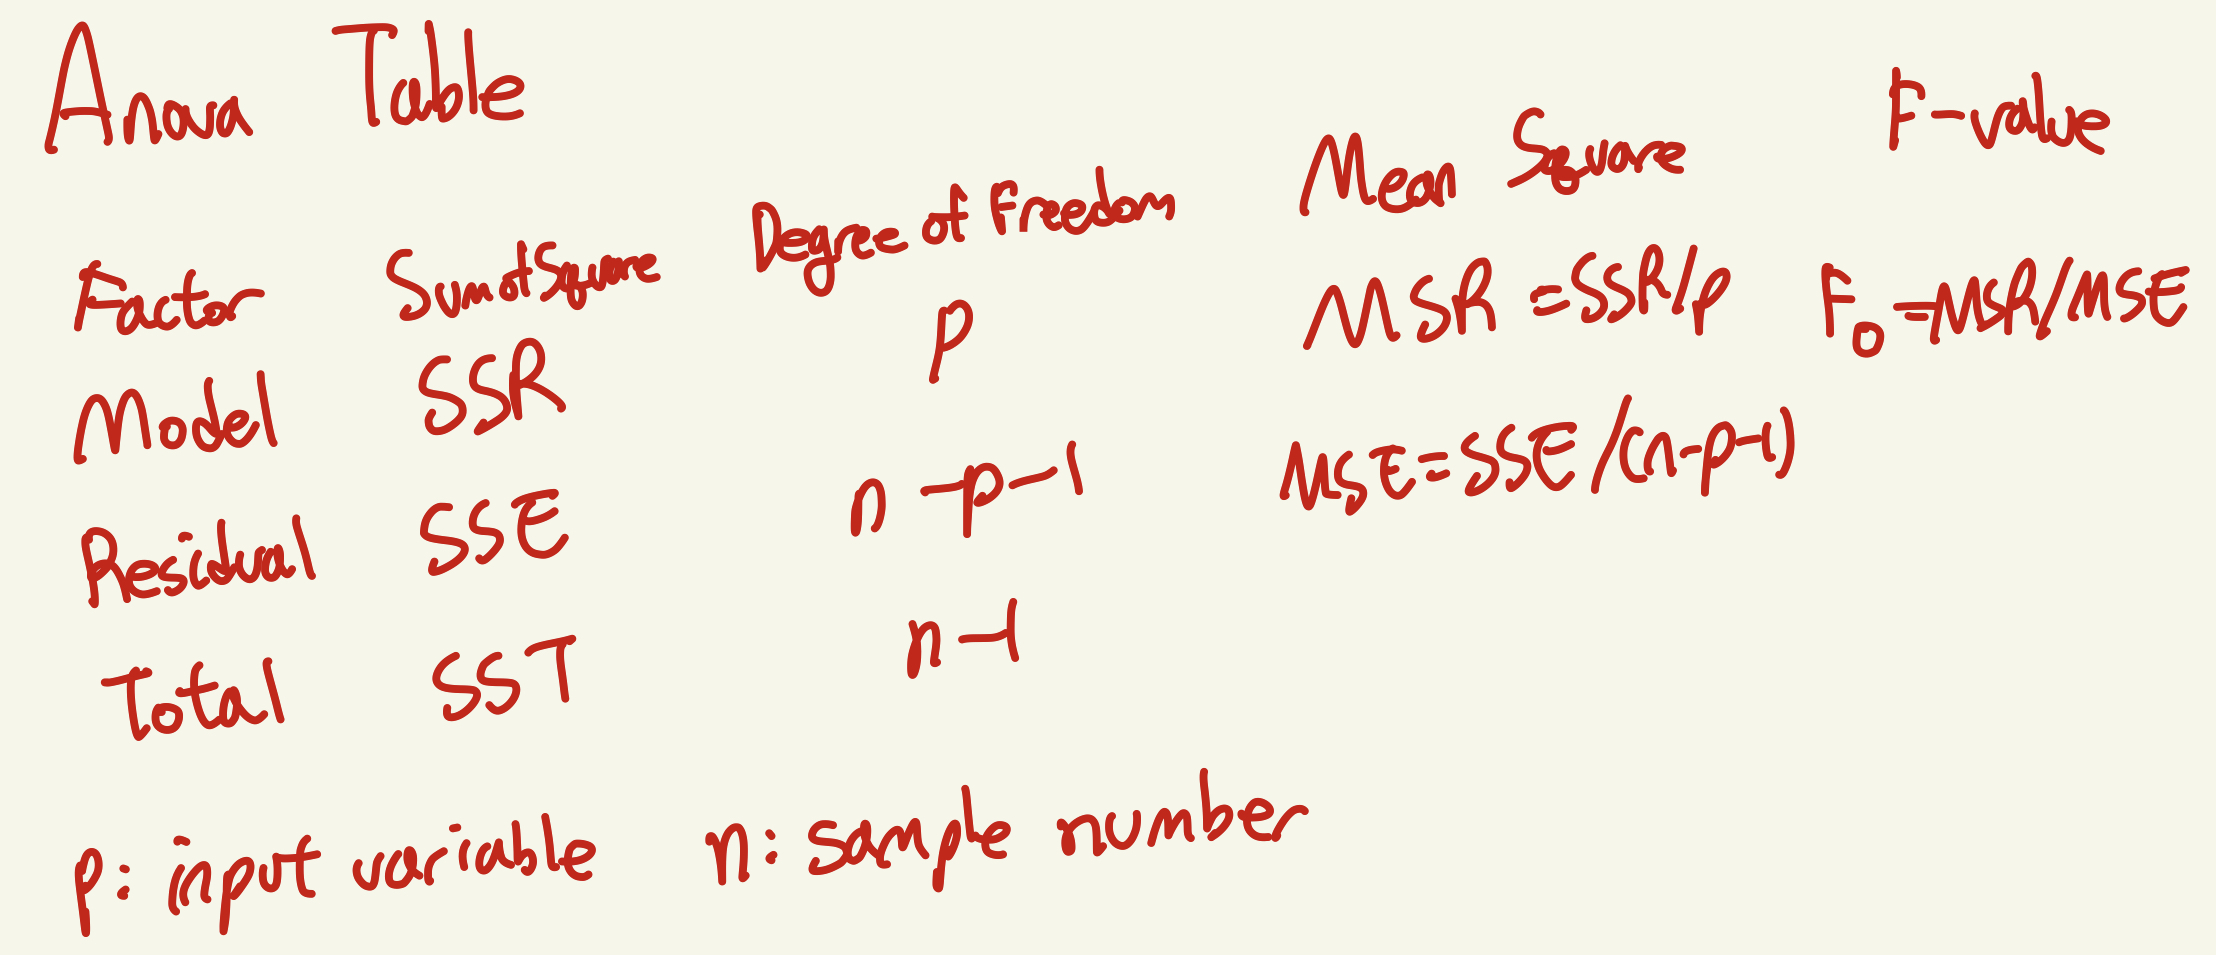 Anova Table
Factor Sum of Square Degree of Freedom Mean Square F-value
Model SSR p MSR = SSR/p F0 = MSR/MSE
Residual SSE n-p-1 MSE = SSE/(n-p-1)
Total SST n-1
p: input variable n: sample number